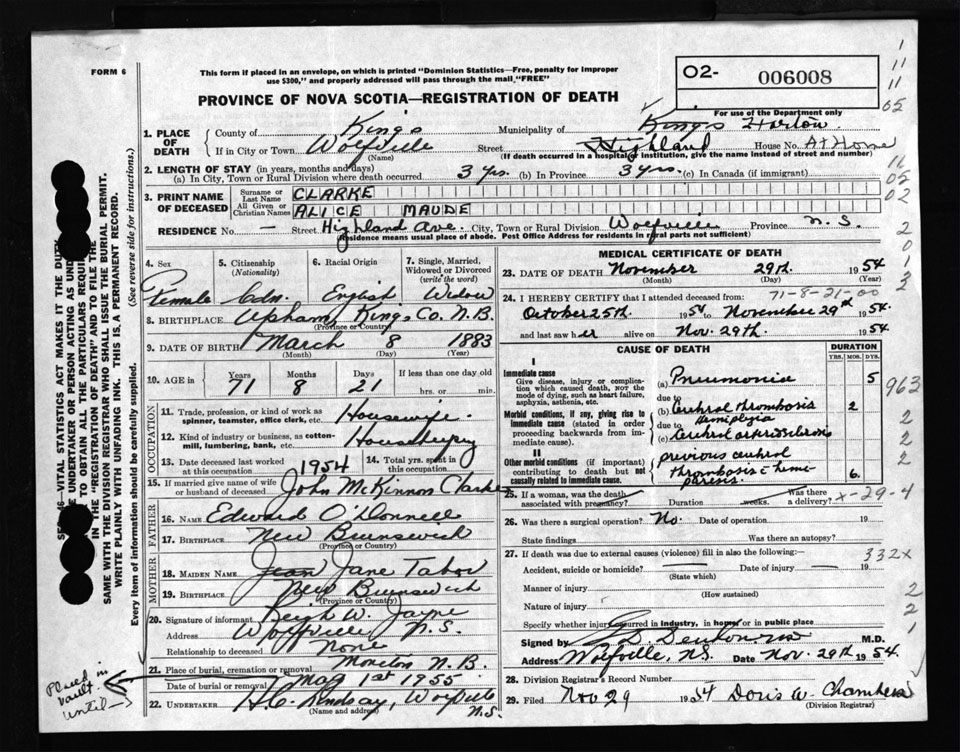 FORM 6
This form if placed in an envelope, on which is printed "Dominion Statistics—Free, penalty for improper
use $300," and properly addressed will pass through the mail "FREE"
02- 006008
For use of the Department only
PROVINCE OF NOVA SCOTIA—REGISTRATION OF DEATH
1. PLACE OF DEATH
County of Kings Municipality of Kings Horton
If in City or Town Wolfville (Name) Street Highland House No. At Home
(If death occurred in a hospital or institution, give the name instead of street and number)
2. LENGTH OF STAY (in years, months and days)
(a) In City, Town or Rural Division where death occurred 3 yrs. (b) In Province 3 yrs. (c) In Canada (if immigrant)
3. PRINT NAME OF DECEASED
Surname or Last Name CLARKE
All Given or Christian Names ALICE MAUDE
RESIDENCE No. — Street Highland Ave. City, Town or Rural Division Wolfville Province N.S.
(Residence means usual place of abode. Post Office Address for residents in rural parts not sufficient)
4. Sex Female
5. Citizenship (Nationality) Cdn.
6. Racial Origin English
7. Single, Married, Widowed or Divorced (write the word) Widow
8. BIRTHPLACE Upham Kings Co. N.B.
(Province or Country)
9. DATE OF BIRTH March 8 1883
(Month) (Day) (Year)
10. AGE in Years 71 Months 8 Days 21 If less than one day old hrs. or min.
OCCUPATION
11. Trade, profession, or kind of work as spinner, teamster, office clerk, etc. Housewife.
12. Kind of industry or business, as cotton-mill, lumbering, bank, etc. Housekeeping
13. Date deceased last worked at this occupation 1954
14. Total yrs. spent in this occupation
15. If married give name of wife or husband of deceased John McKinnon Clarke
FATHER
16. NAME Edward O'Donnell
17. BIRTHPLACE New Brunswick
(Province or Country)
MOTHER
18. MAIDEN NAME Jean Jane Tabor
19. BIRTHPLACE New Brunswick
(Province or Country)
20. Signature of informant W. Jayne
Address Wolfville N.S.
Relationship to deceased None
21. Place of burial, cremation or removal Moncton N.B.
Date of burial or removal May 1st 1955
22. UNDERTAKER Lindsay, Wolfville N.S.
(Name and address)
MEDICAL CERTIFICATE OF DEATH
23. DATE OF DEATH November 29th. 1954
(Month) (Day) (Year)
71-8-21-00
24. I HEREBY CERTIFY that I attended deceased from:
October 25th. 1954 to November 29th 1954
and last saw her alive on Nov. 29th. 1954.
CAUSE OF DEATH
DURATION
YRS. MOS. DYS.
I
Immediate cause
Give disease, injury or complication which caused death, not the mode of dying, such as heart failure, asphyxia, asthenia, etc.
(a) Pneumonia 5
due to
Morbid conditions, if any, giving rise to immediate cause (stated in order proceeding backwards from immediate cause).
(b) Cerebral thrombosis Hemiplegia 2
due to
(c) Cerebral arteriosclerosis
II
Other morbid conditions (if important) contributing to death but not causally related to immediate cause.
previous cerebral thrombosis c hemiparesis. 6.
25. If a woman, was the death associated with pregnancy? Duration weeks. Was there a delivery? x-29-4
26. Was there a surgical operation? No. Date of operation 19
State findings Was there an autopsy?
27. If death was due to external causes (violence) fill in also the following:—
332x
Accident, suicide or homicide? Date of injury 19
(State which)
Manner of injury
(How sustained)
Nature of injury
Specify whether injury occurred in industry, in home or in public place
Signed by M.D.
Address Wolfville, N.S. Date Nov. 29th 1954.
28. Division Registrar's Record Number
29. Filed Nov 29 1954 Doris W. Chambers
(Division Registrar)
(See reverse side for instructions.)
SAME WITH THE DIVISION REGISTRAR WHO SHALL ISSUE THE BURIAL PERMIT.
WRITE PLAINLY WITH UNFADING INK. THIS IS A PERMANENT RECORD.
Every item of information should be carefully supplied.
Placed in vault until
963